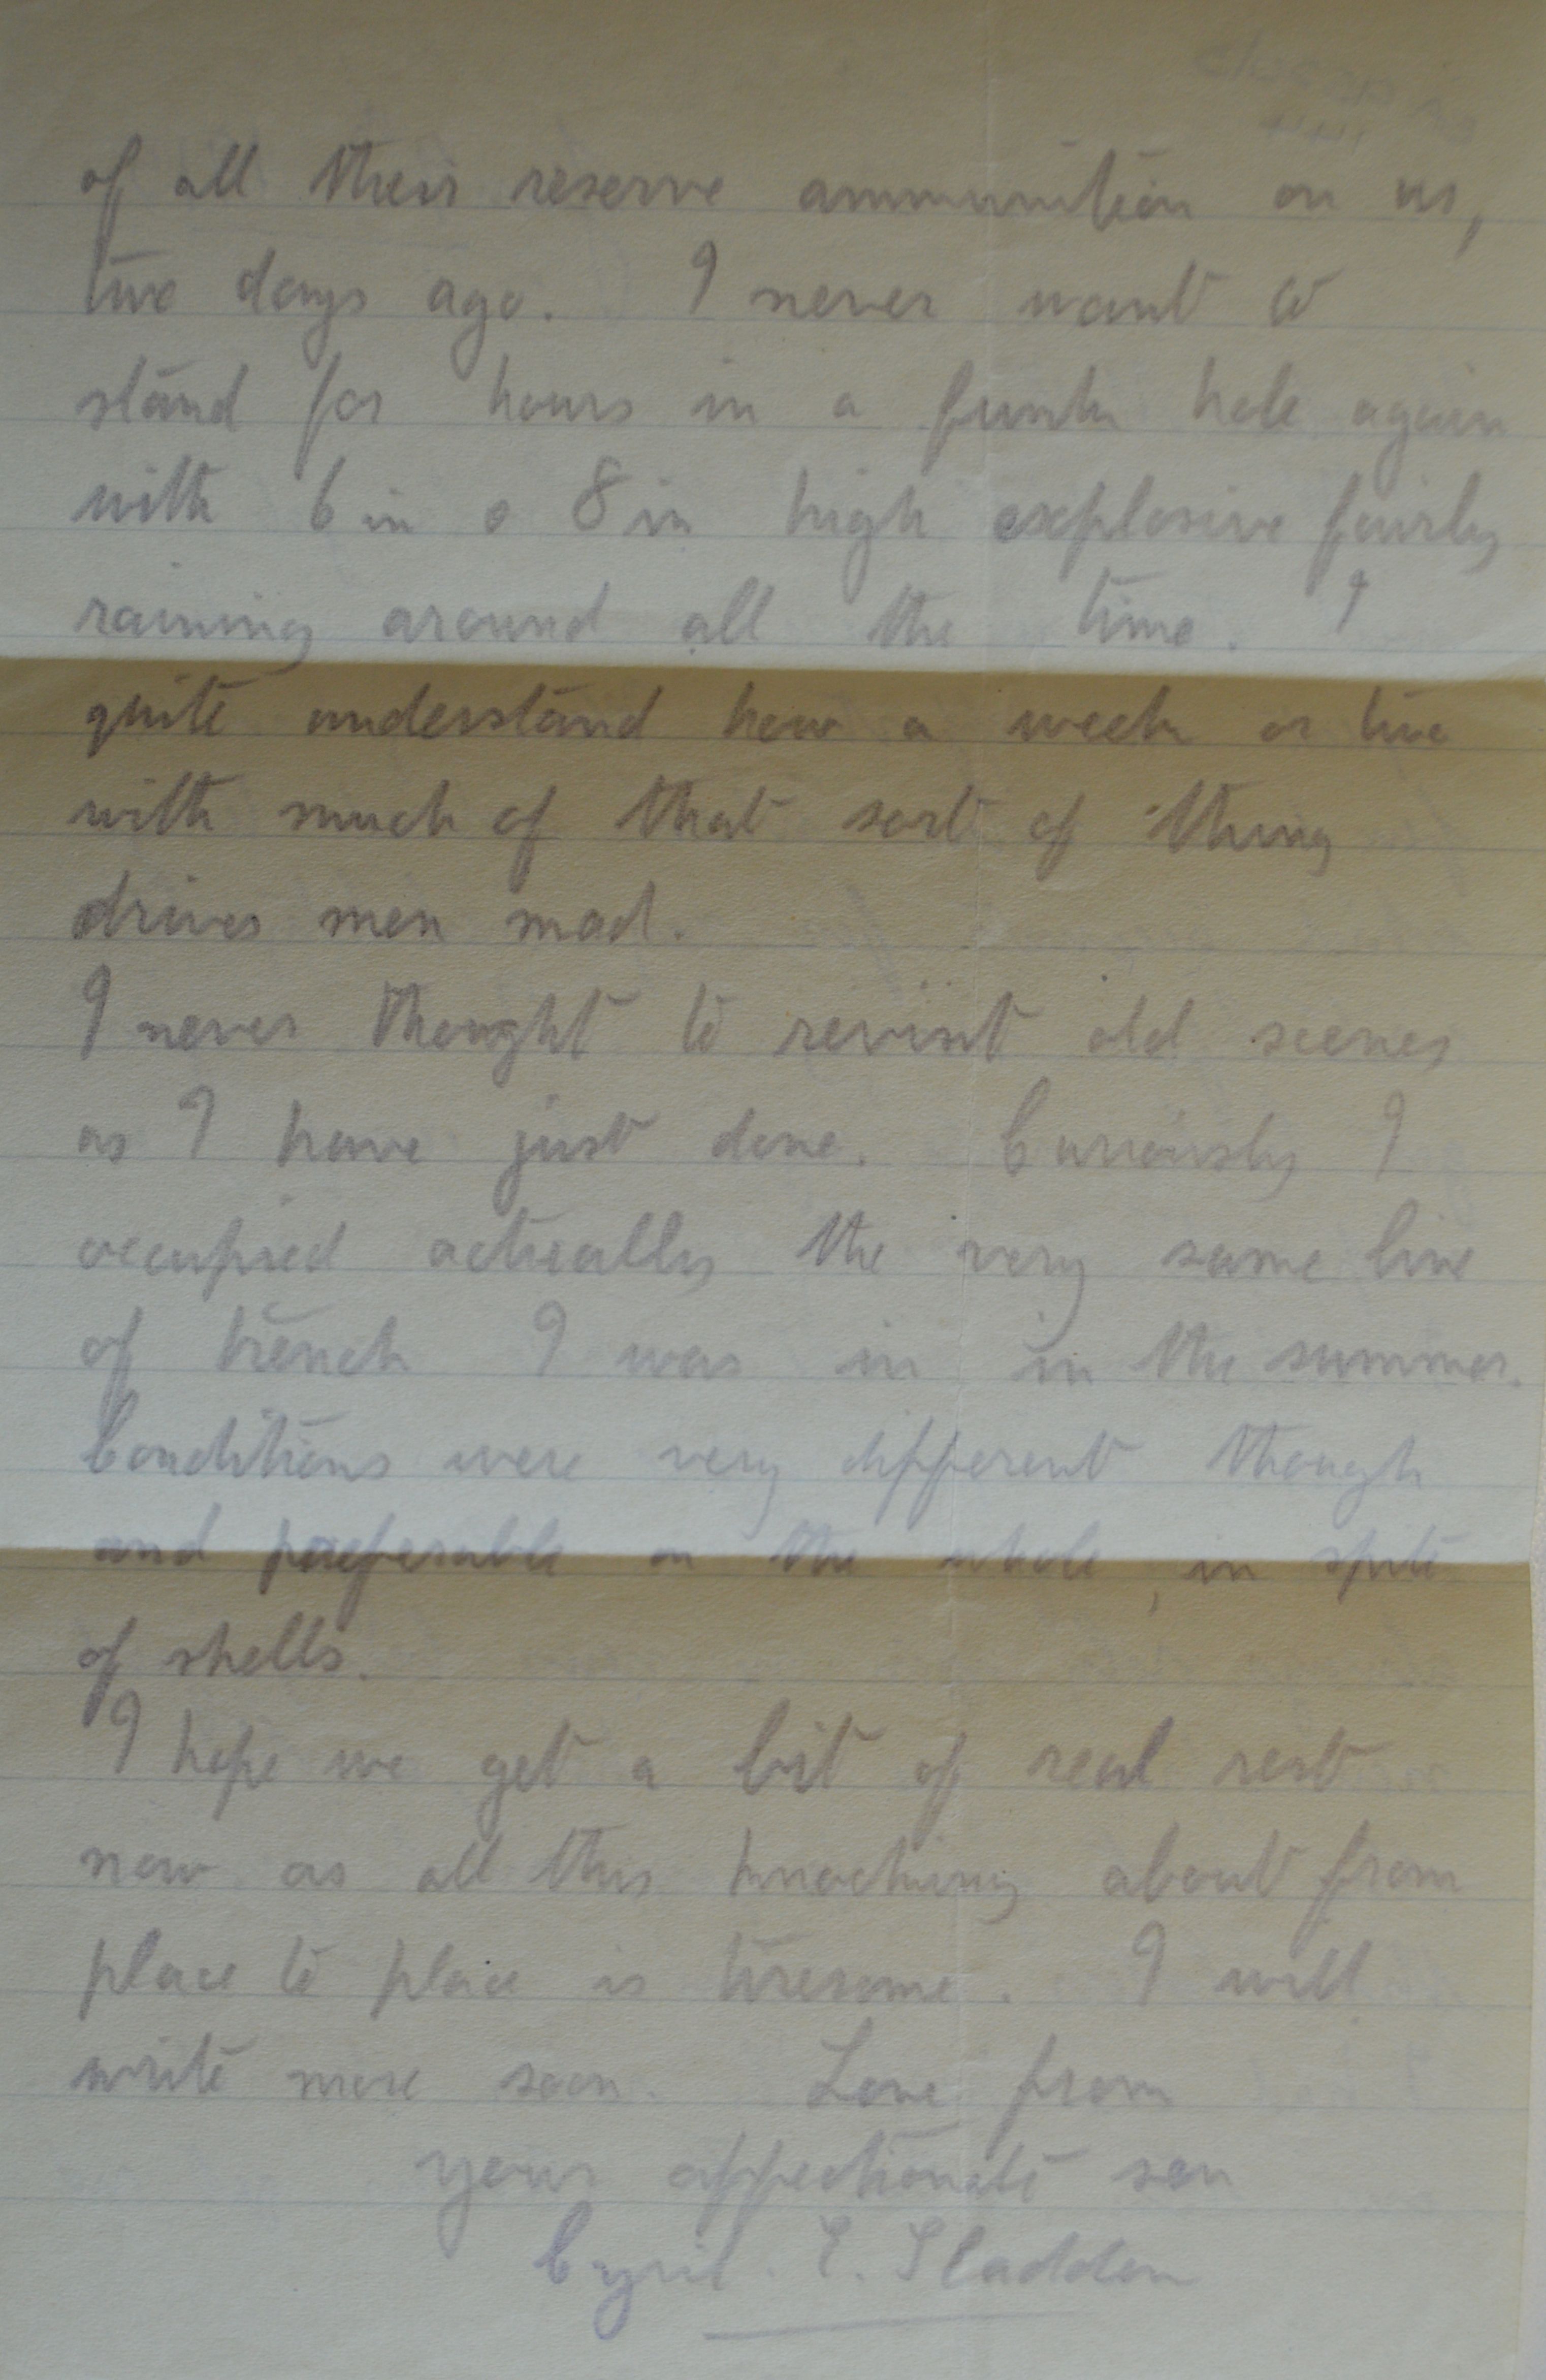 of all their reserve ammunition on us,
two days ago. I never want to
stand for hours in a funk hole again
with 6 in & 8 in high explosive fairly
raining around all the time. I
quite understand how a week or two
with much of that sort of thing
drives men mad.
I never thought to revisit old scenes
as I have just done. Curiously I
occupied actually the very same line
of trench I was in in the summer.
Conditions were very different though
and preferable on the whole, in spite
of shells.
I hope we get a bit of real rest
now as all this knocking about from
place to place is tiresome. I will
write more soon. Love from
your affectionate son
Cyril. E. Sladden